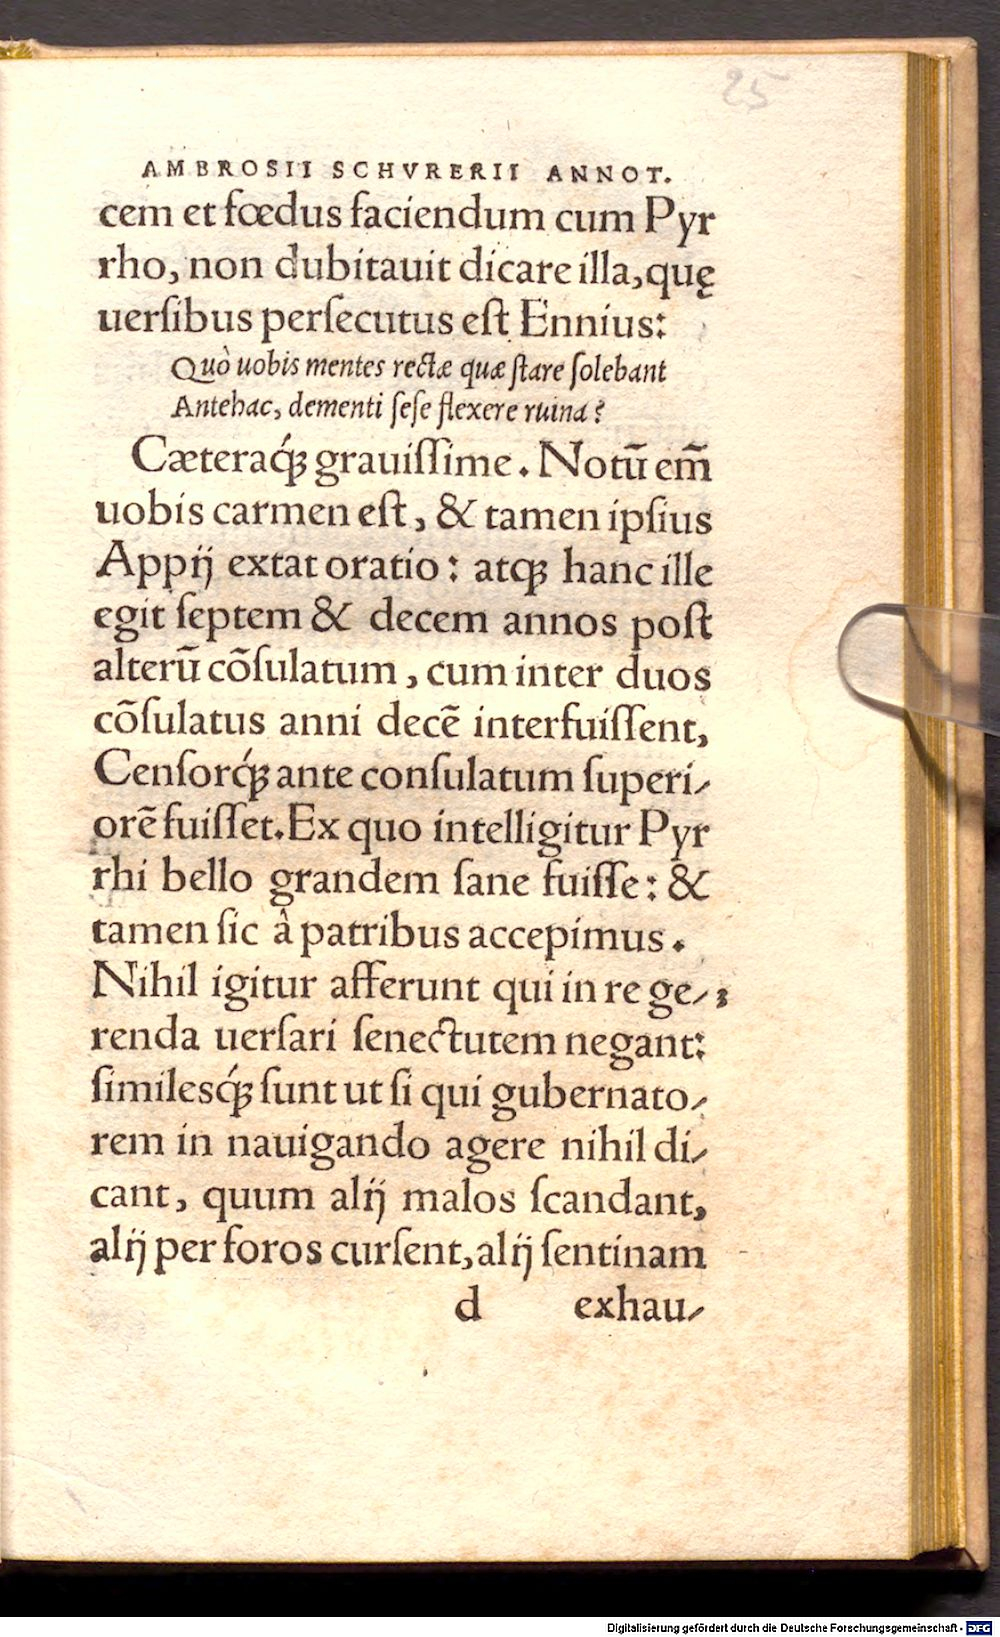 25
AMBROSII SCHVRERII ANNOT.
cem et fœdus faciendum cum Pyr
rho, non dubitauit dicare illa, quę
uerſibus perſecutus eſt Ennius:
Quò uobis mentes rectæ quæ ſtare ſolebant
Antehac, dementi ſeſe flexere ruina?
Cæteraq́ꝫ grauiſſime. Notũ em̃
uobis carmen eſt, & tamen ipſius
Appij extat oratio: atqꝫ hanc ille
egit ſeptem & decem annos poſt
alterũ cõſulatum, cum inter duos
cõſulatus anni decẽ interfuiſſent,
Cenſorq́ꝫ ante conſulatum ſuperi-
orẽ fuiſſet. Ex quo intelligitur Pyr
rhi bello grandem ſane fuiſſe: &
tamen ſic à patribus accepimus.
Nihil igitur afferunt qui in re ge-
renda uerſari ſenectutem negant:
ſimilesq́ꝫ ſunt ut ſi qui gubernato-
rem in nauigando agere nihil di-
cant, quum alij malos ſcandant,
alij per foros curſent, alij ſentinam
d exhau-
Digitalisierung gefördert durch die Deutsche Forschungsgemeinschaft - DFG